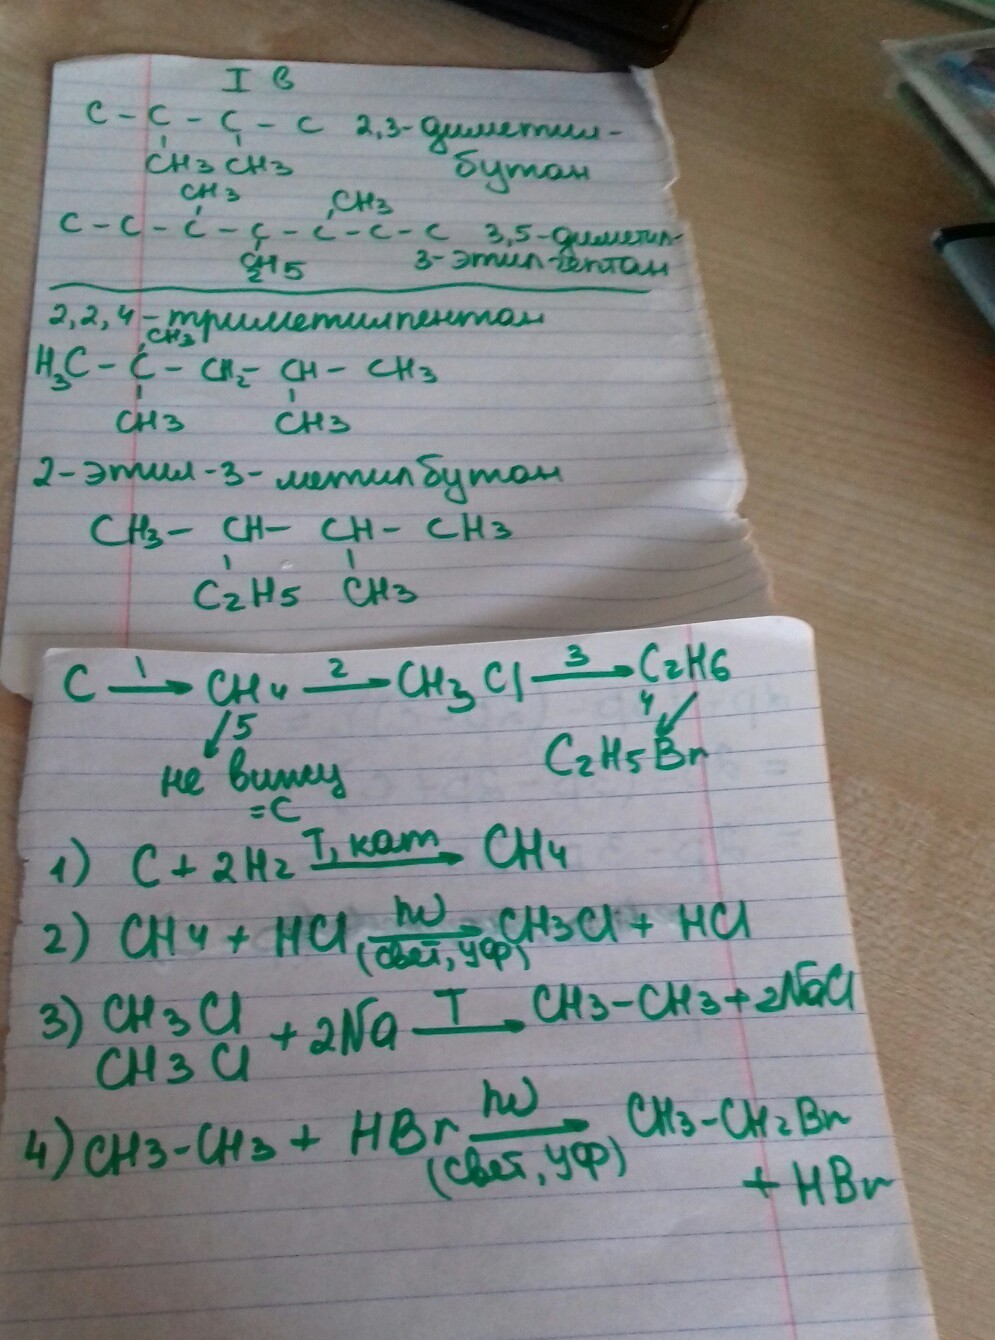 I в
C - C - C - C 2,3-диметил-
CH3 CH3 бутан
CH3 CH3
C - C - C - C - C - C - C 3,5-диметил-
C2H5 3-этилгептан
2,2,4-триметилпентан
CH3
H3C - C - CH2 - CH - CH3
CH3 CH3
2-этил-3-метилбутан
CH3 - CH - CH - CH3
C2H5 CH3
C →1 CH4 →2 CH3Cl →3 C2H6
↙5 4↙
не вижу C2H5Br
=C
1) C + 2H2 T, кат → CH4
2) CH4 + HCl hν → (свет, УФ) CH3Cl + HCl
3) CH3Cl
CH3Cl + 2Na T → CH3-CH3 + 2NaCl
4) CH3-CH3 + HBr hν → (свет, УФ) CH3-CH2Br
+ HBr